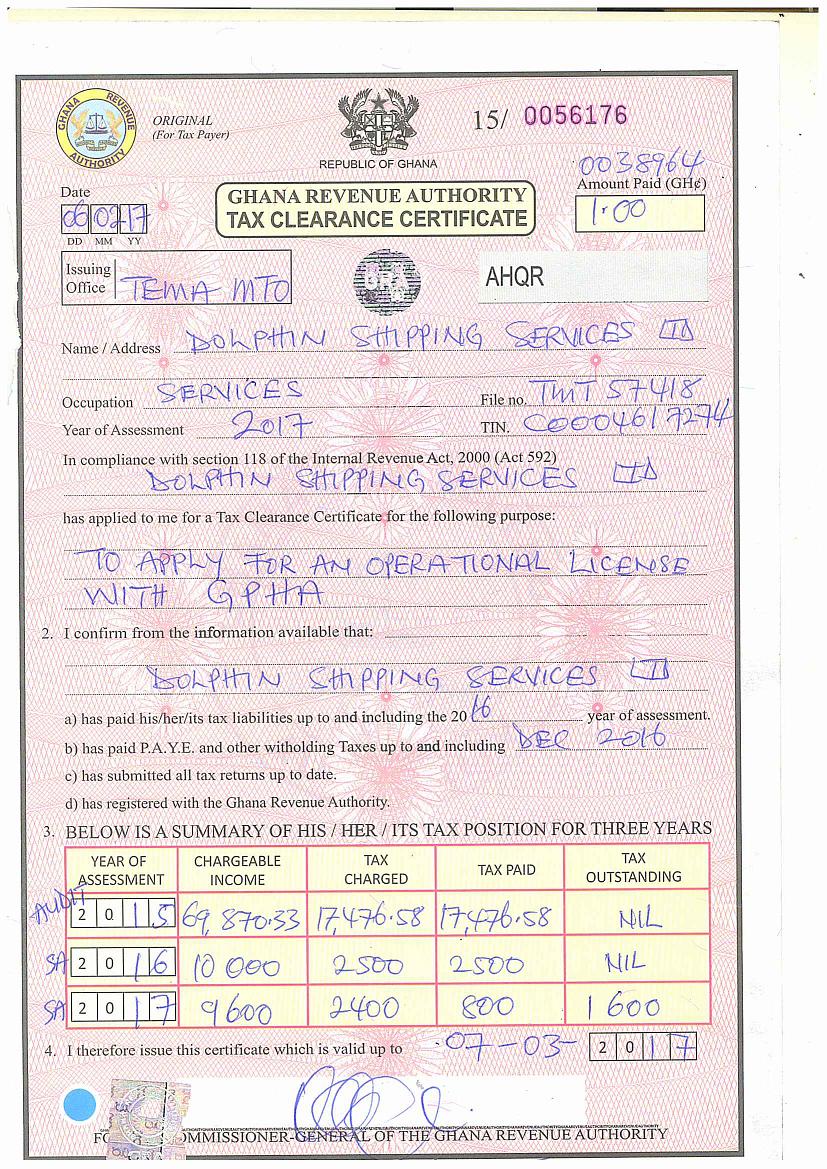 GHANA REVENUE AUTHORITY
ORIGINAL
(For Tax Payer)
REPUBLIC OF GHANA
15/ 0056176
0038964
Date
06 02 17
DD MM YY
GHANA REVENUE AUTHORITY
TAX CLEARANCE CERTIFICATE
Amount Paid (GH¢)
1.00
Issuing Office TEMA MTO
GRA
AHQR
Name / Address DOLPHIN SHIPPING SERVICES LTD
Occupation SERVICES File no. TMT 57418
Year of Assessment 2017 TIN. C0004617274
In compliance with section 118 of the Internal Revenue Act, 2000 (Act 592)
DOLPHIN SHIPPING SERVICES LTD
has applied to me for a Tax Clearance Certificate for the following purpose:
TO APPLY FOR AN OPERATIONAL LICENSE
WITH GPHA
2. I confirm from the information available that:
DOLPHIN SHIPPING SERVICES LTD
a) has paid his/her/its tax liabilities up to and including the 2016 year of assessment.
b) has paid P.A.Y.E. and other witholding Taxes up to and including DEC 2016
c) has submitted all tax returns up to date.
d) has registered with the Ghana Revenue Authority.
3. BELOW IS A SUMMARY OF HIS / HER / ITS TAX POSITION FOR THREE YEARS
YEAR OF ASSESSMENT CHARGEABLE INCOME TAX CHARGED TAX PAID TAX OUTSTANDING
AUDIT 2015 69,870.33 17,476.58 17,476.58 NIL
SA 2016 10 000 2500 2500 NIL
SA 2017 9600 2400 800 1600
4. I therefore issue this certificate which is valid up to 07-03-2017
COMMISSIONER-GENERAL OF THE GHANA REVENUE AUTHORITY